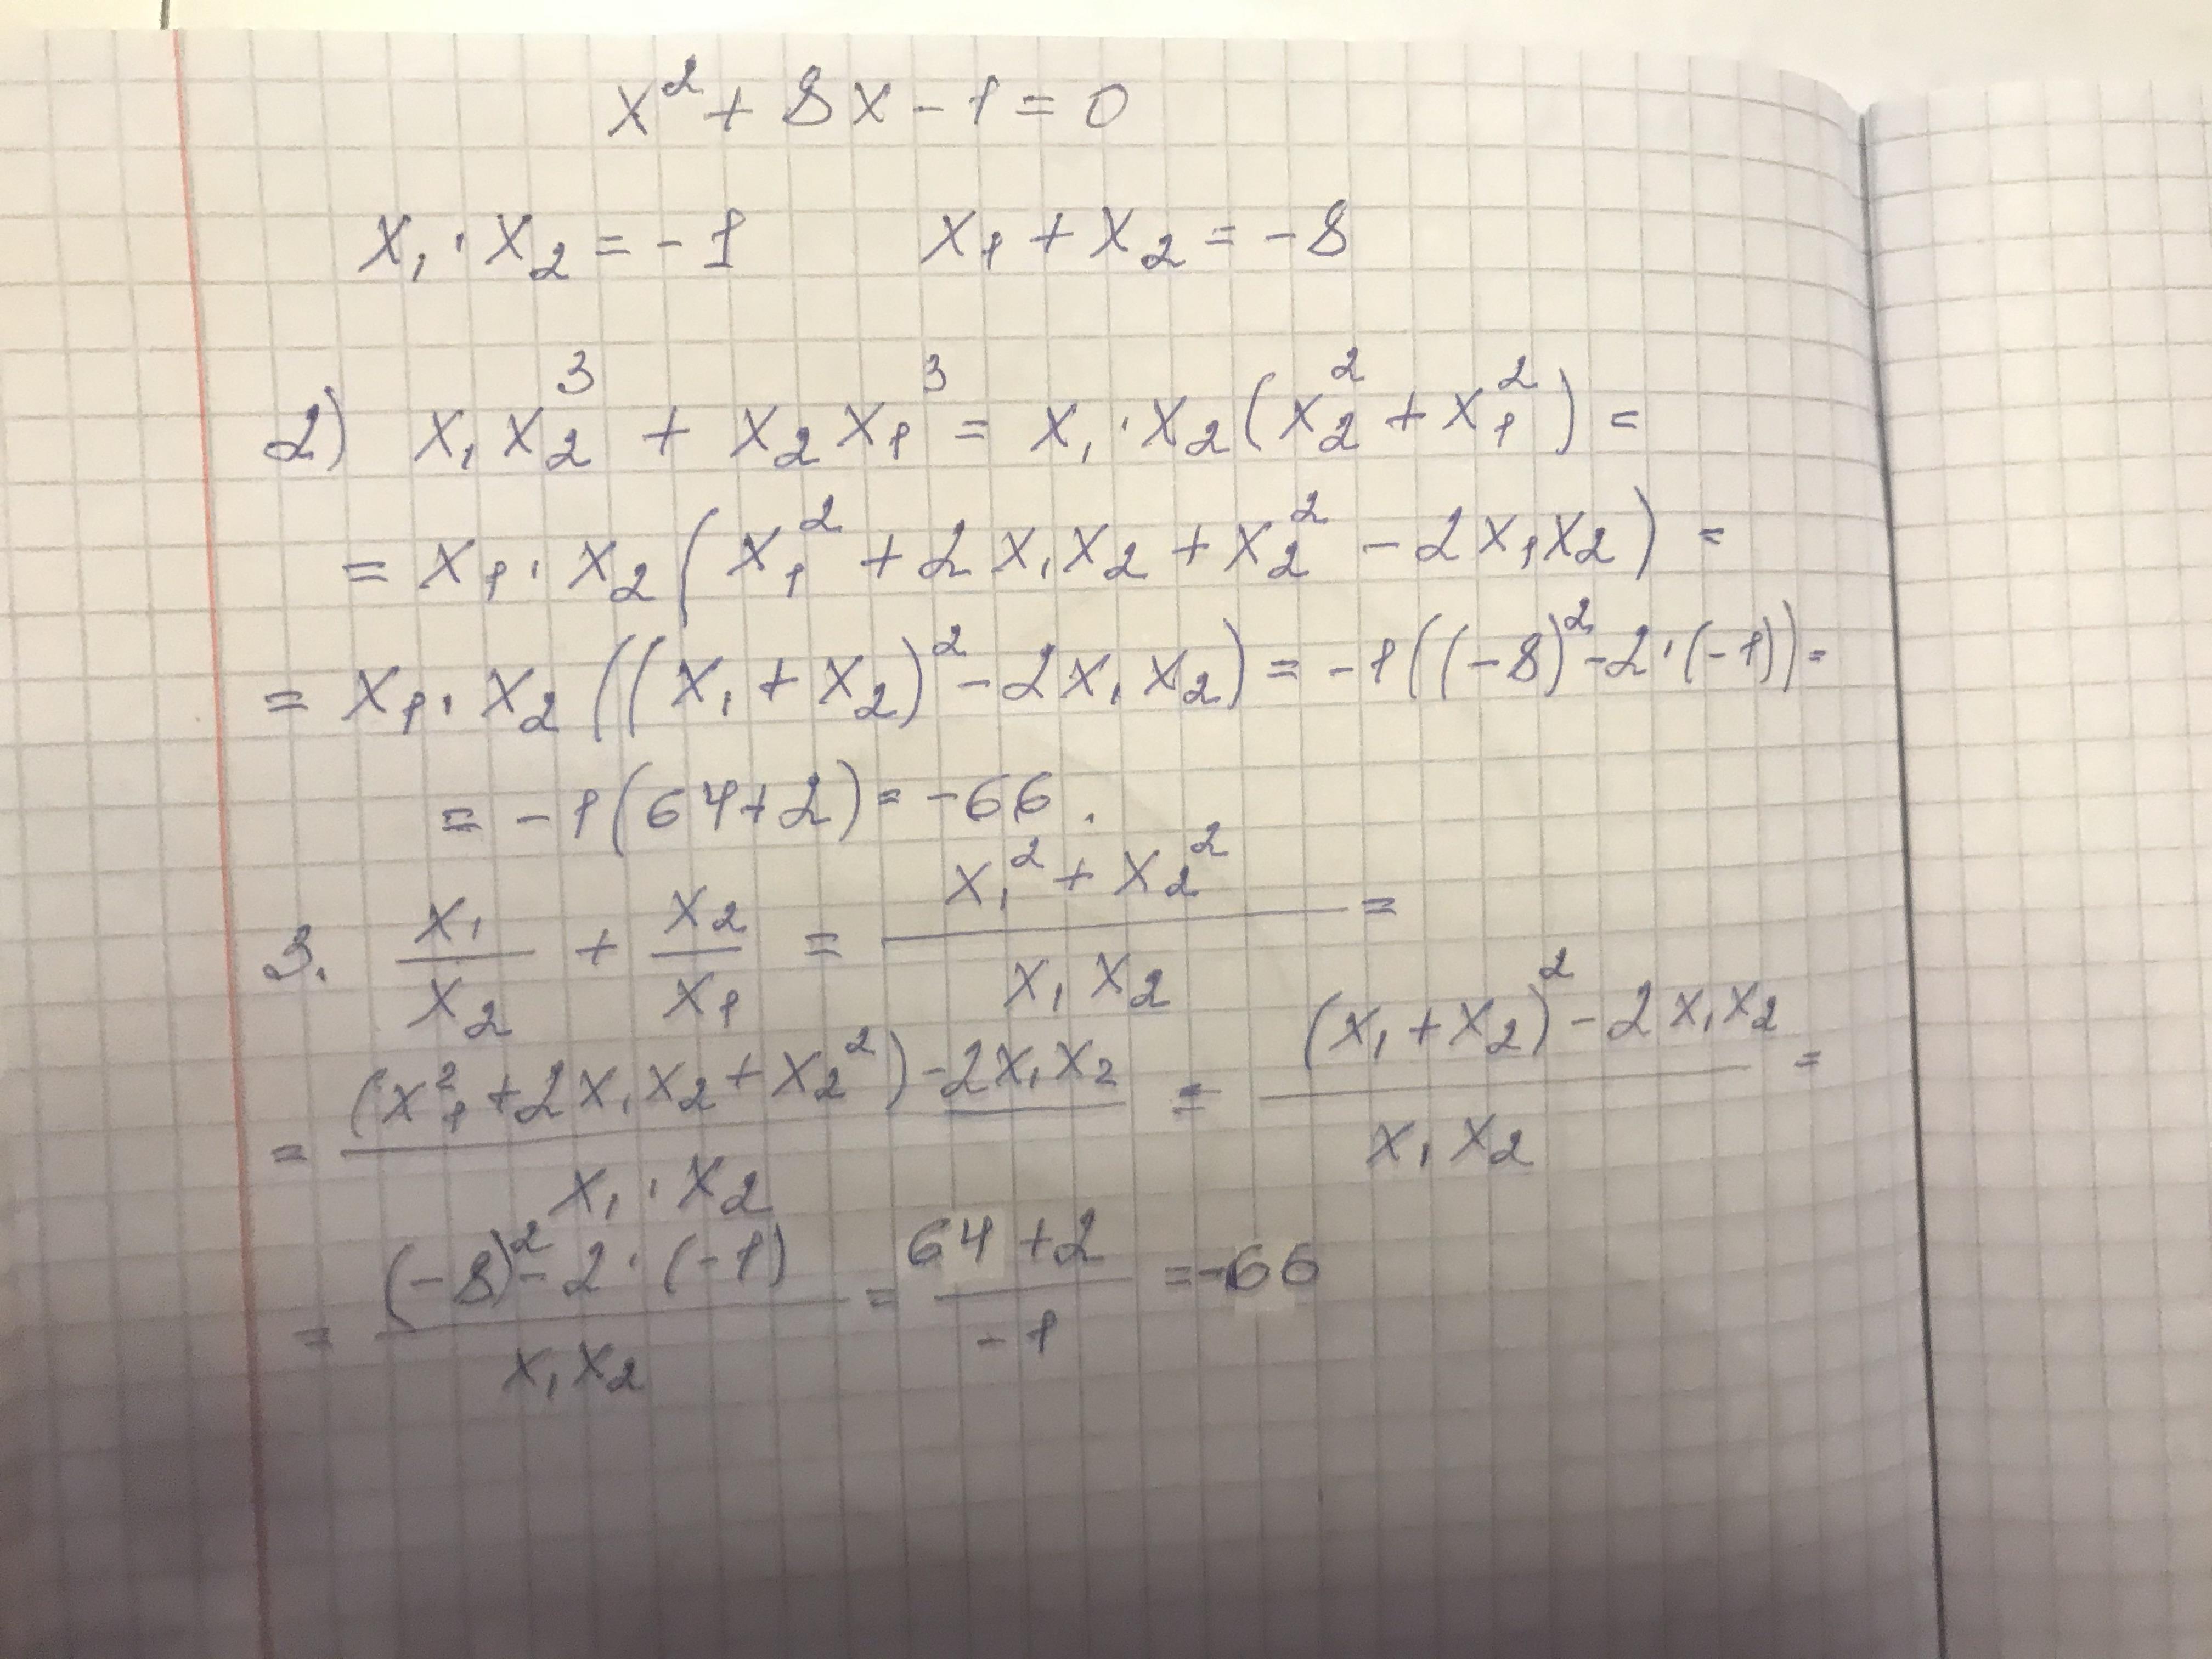 x² + 8x - 1 = 0
x₁ · x₂ = -1    x₁ + x₂ = -8
2) x₁x₂³ + x₂x₁³ = x₁ · x₂(x₂² + x₁²) =
= x₁ · x₂(x₁² + 2x₁x₂ + x₂² - 2x₁x₂) =
= x₁ · x₂((x₁ + x₂)² - 2x₁x₂) = -1((-8)² - 2 · (-1)) =
= -1(64+2) = -66.
3. x₁/x₂ + x₂/x₁ = (x₁² + x₂²)/(x₁x₂) =
= ((x₁² + 2x₁x₂ + x₂²) - 2x₁x₂)/(x₁ · x₂) = ((x₁ + x₂)² - 2x₁x₂)/(x₁x₂) =
= ((-8)² - 2 · (-1))/(x₁x₂) = (64 + 2)/(-1) = -66